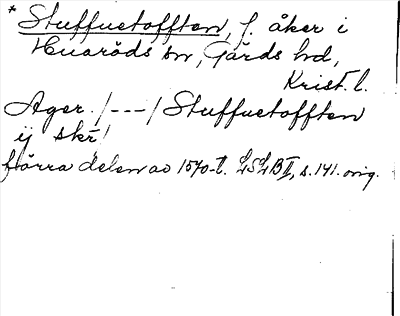 * Stuffuetofften, f. åker i
Huaröds sn, Gärds hd,
Krist. l.
Ager /---/ Stuffuetofften
ij skr
förra delen av 1570-t. LSLB II, s. 141. orig.